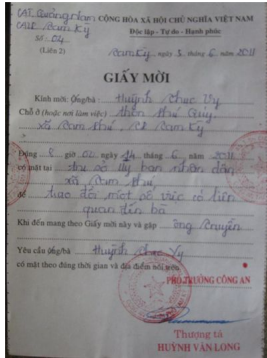 CAT. Quảng Nam CỘNG HÒA XÃ HỘI CHỦ NGHĨA VIỆT NAM
CATP. Tam Kỳ Độc lập - Tự do - Hạnh phúc
Số: 04
(Liên 2) Tam Kỳ, ngày 8 tháng 6 năm 2011
GIẤY MỜI
Kính mời: Ông/bà: Huỳnh Thục Vy
Chỗ ở (hoặc nơi làm việc) thôn Phú Quý,
xã Tam Phú, TP. Tam Kỳ
Đúng 8 giờ 00 ngày 14 tháng 6 năm 2011
có mặt tại trụ sở Ủy ban nhân dân
xã Tam Phú,
để trao đổi một số việc có liên
quan đến bà
Khi đến mang theo Giấy mời này và gặp ông Nguyễn
Yêu cầu ông/bà Huỳnh Thục Vy
có mặt theo đúng thời gian và địa điểm nói trên.
PHÓ TRƯỞNG CÔNG AN
Thượng tá
HUỲNH VĂN LONG